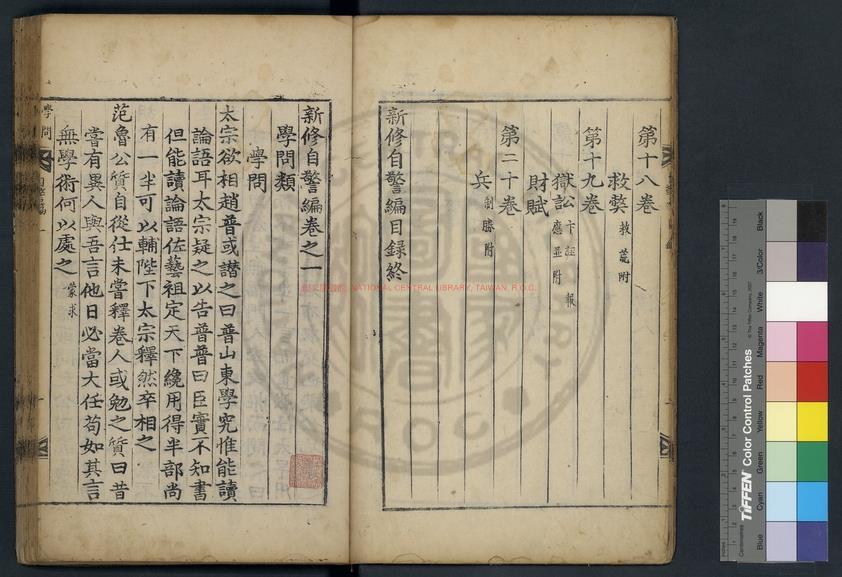 第十八卷
救弊 救荒附
第十九卷
獄訟
財賦
第二十卷
兵 制勝附
新修自警編目錄終
新修自警編卷之一
學問類
學問
太宗欲相趙普或譖之曰普山東學究惟能讀
論語耳太宗疑之以告普普曰臣實不知書
但能讀論語佐藝祖定天下纔用得半部尚
有一半可以輔陛下太宗釋然卒相之
范魯公質自從仕未嘗釋卷人或勉之質曰昔
嘗有異人與吾言他日必當大任苟如其言
無學術何以處之 蒙求
學問
NATIONAL CENTRAL LIBRARY, TAIWAN, R.O.C.
TIFFEN Color Control Patches
© The Tiffen Company, 2007
Blue
Cyan
Green
Yellow
Red
Magenta
White
3/Color
Black